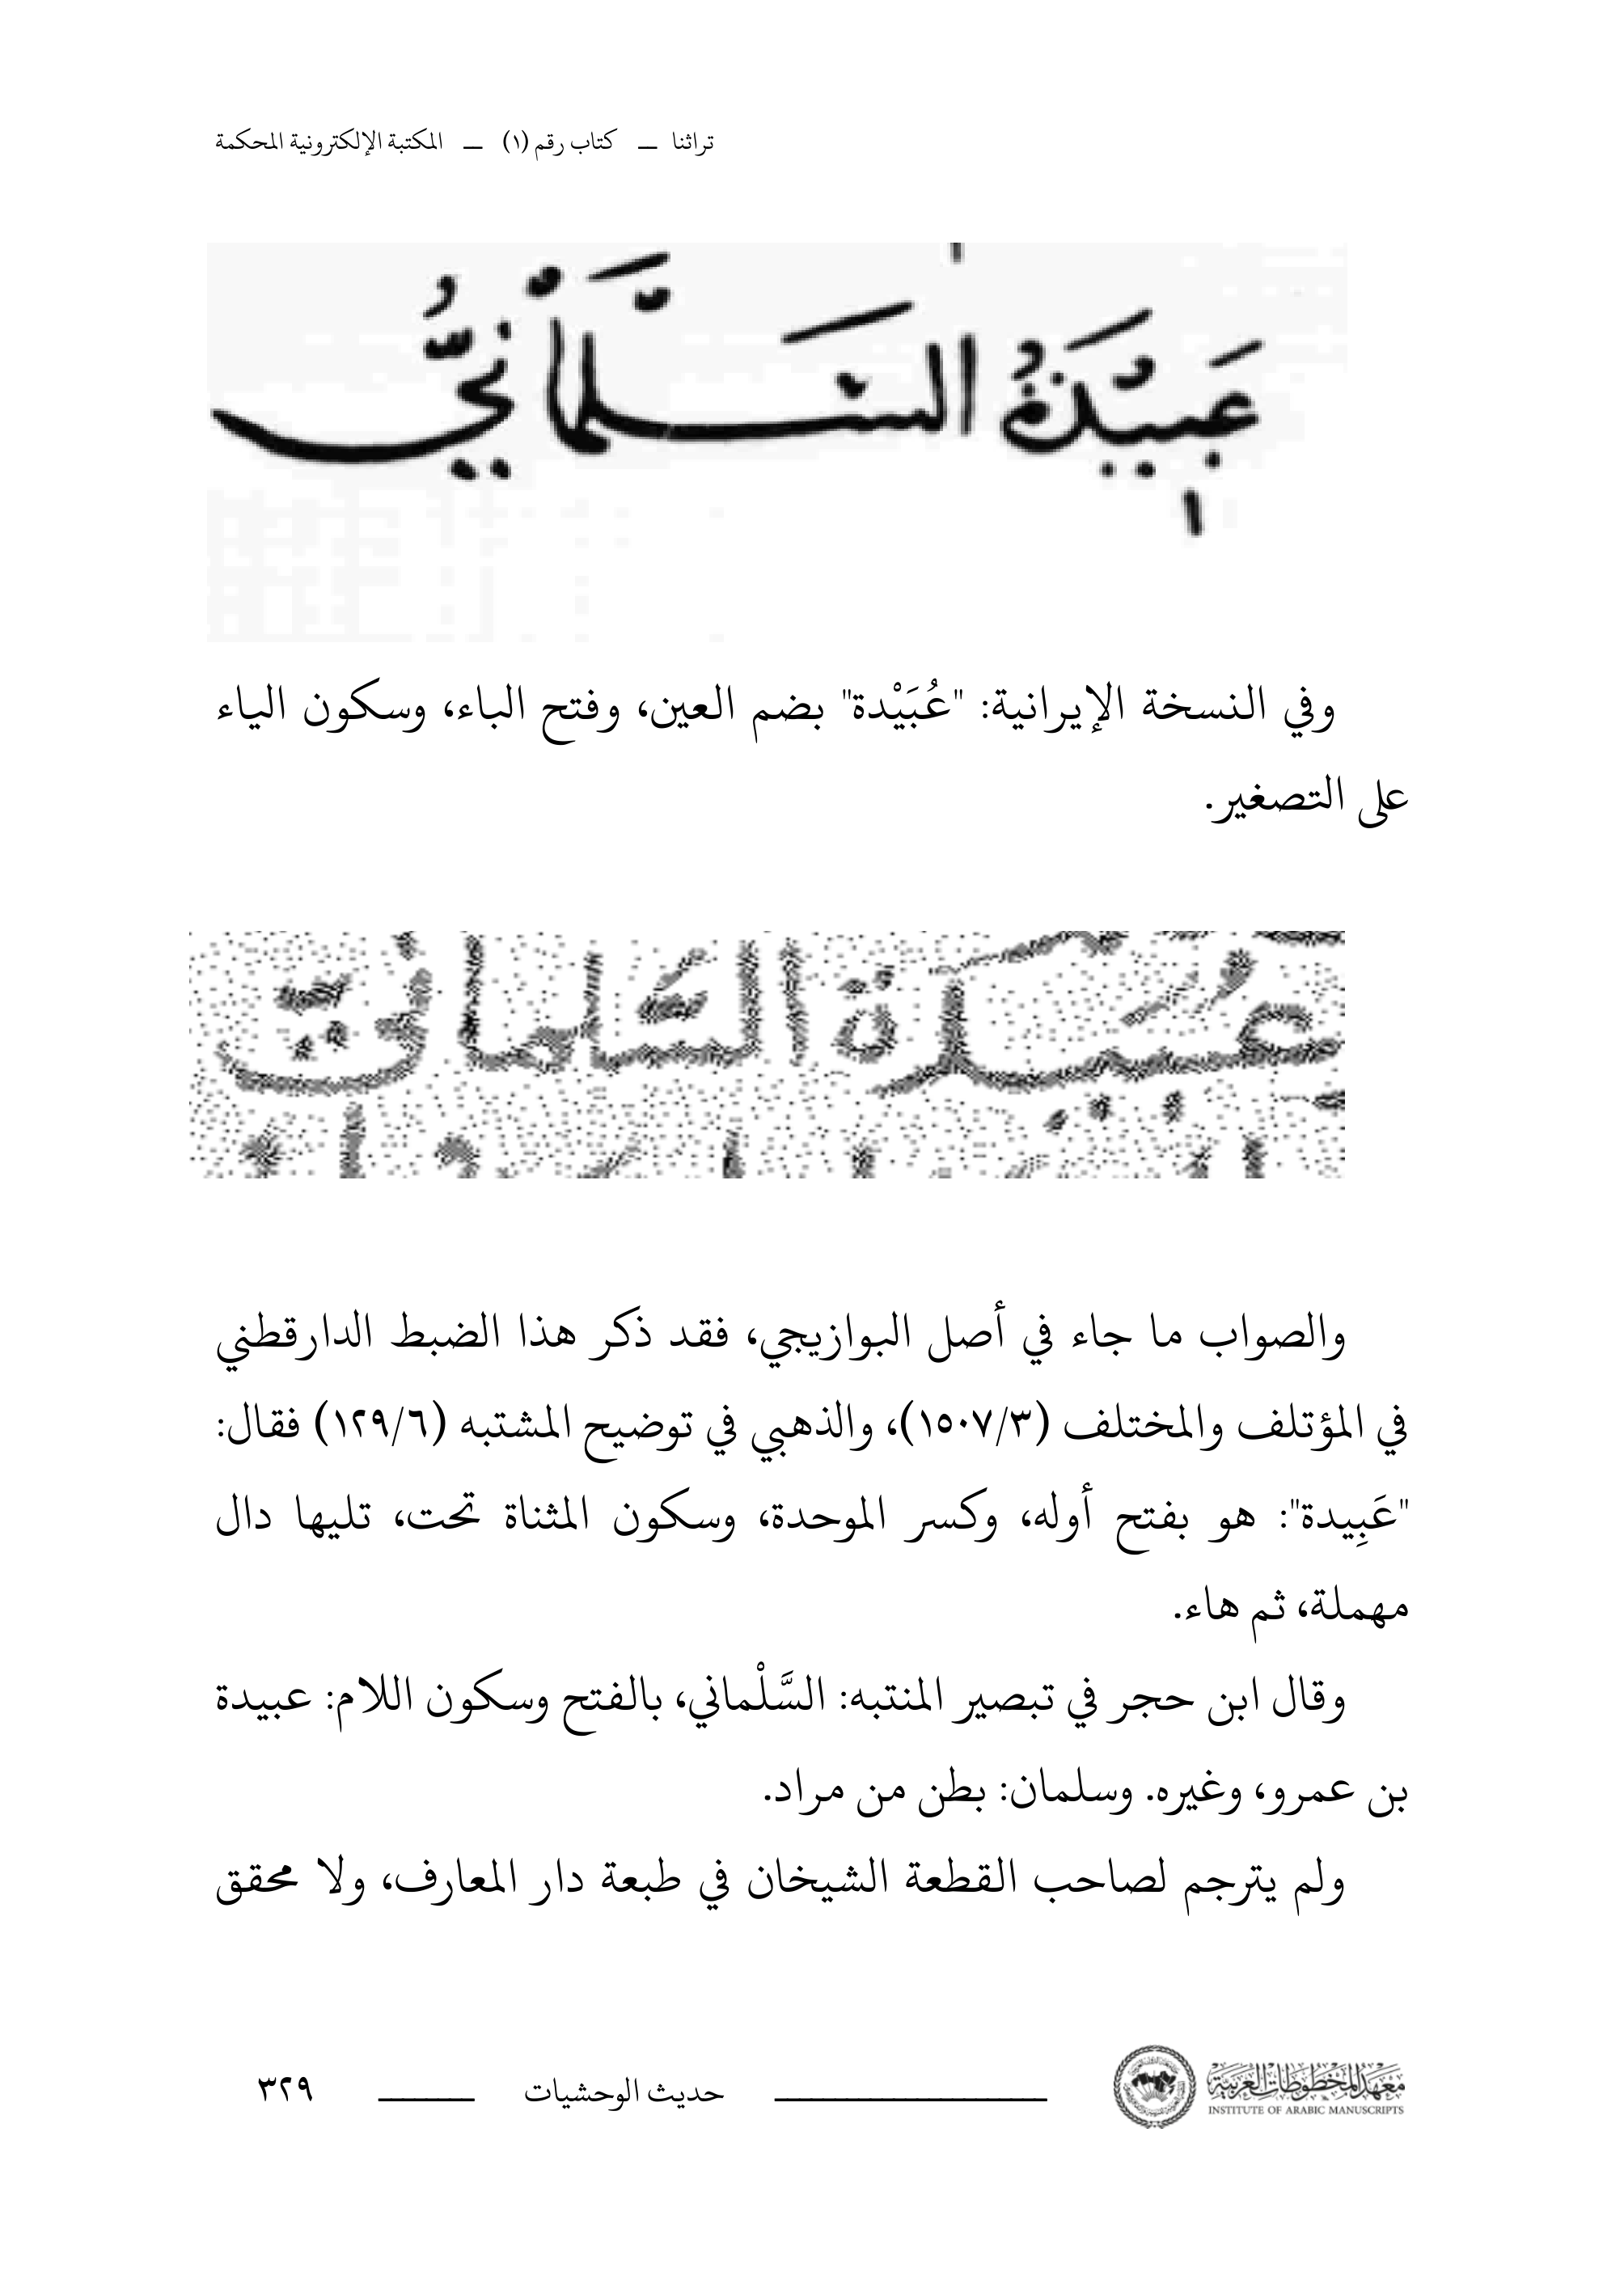 تراثنا — كتاب رقم (١) — المكتبة الإلكترونية المحكمة
عَبيَدَةُ السَّلْمَانيُّ
وفي النسخة الإيرانية: "عُبَيْدة" بضم العين، وفتح الباء، وسكون الياء
على التصغير.
عُبَيدة السَّلماني
والصواب ما جاء في أصل البوازيجي، فقد ذكر هذا الضبط الدارقطني
في المؤتلف والمختلف (١٥٠٧/٣)، والذهبي في توضيح المشتبه (١٢٩/٦) فقال:
"عَبِيدة": هو بفتح أوله، وكسر الموحدة، وسكون المثناة تحت، تليها دال
مهملة، ثم هاء.
وقال ابن حجر في تبصير المنتبه: السَّلْماني، بالفتح وسكون اللام: عبيدة
بن عمرو، وغيره. وسلمان: بطن من مراد.
ولم يترجم لصاحب القطعة الشيخان في طبعة دار المعارف، ولا محقق
معهد المخطوطات العربية
INSTITUTE OF ARABIC MANUSCRIPTS
حديث الوحشيات
٣٢٩